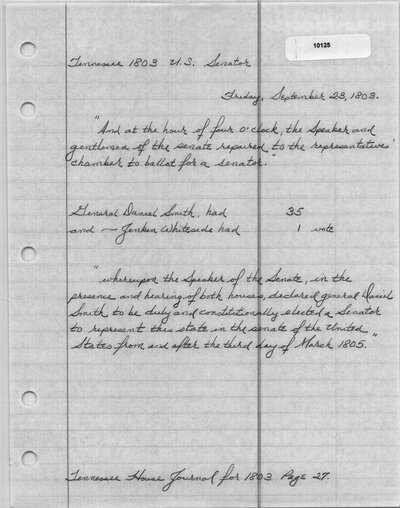 10125
Tennessee 1803 U.S. Senator
Friday, September 23, 1803.
"And at the hour of four o'clock, the Speaker and
gentlemen of the senate repaired to the representatives'
chamber to ballot for a senator."
General Daniel Smith, had 35
and — Jenkin Whiteside had 1 vote
"whereupon the Speaker of the Senate, in the
presence and hearing of both houses, declared general Daniel
Smith to be duly and constitutionally elected a Senator
to represent this state in the senate of the United
States from and after the third day of March 1805."
Tennessee House Journal for 1803 Page 27.